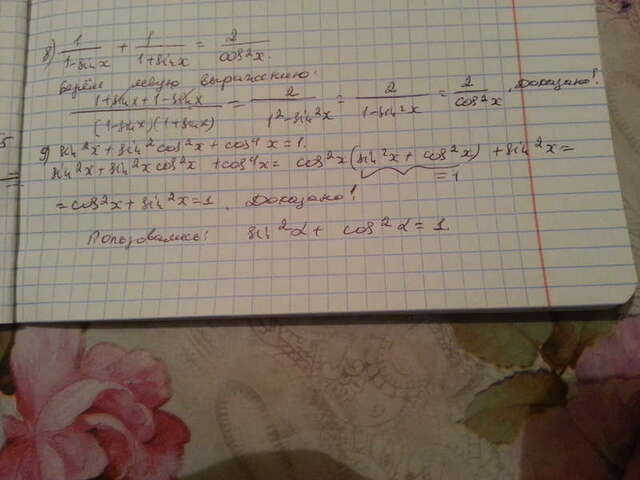 8) 1/(1-sin x) + 1/(1+sin x) = 2/cos²x.
Берём левую выражению:
(1+sin x+1-sin x)/((1-sin x)(1+sin x)) = 2/(1²-sin²x) = 2/(1-sin²x) = 2/cos²x. Доказано!
9) sin²x + sin²cos²x + cos⁴x = 1.
sin²x + sin²x cos²x + cos⁴x = cos²x(sin²x + cos²x) + sin²x =
= 1
= cos²x + sin²x = 1. Доказано!
Пользовались: sin²α + cos²α = 1.
5